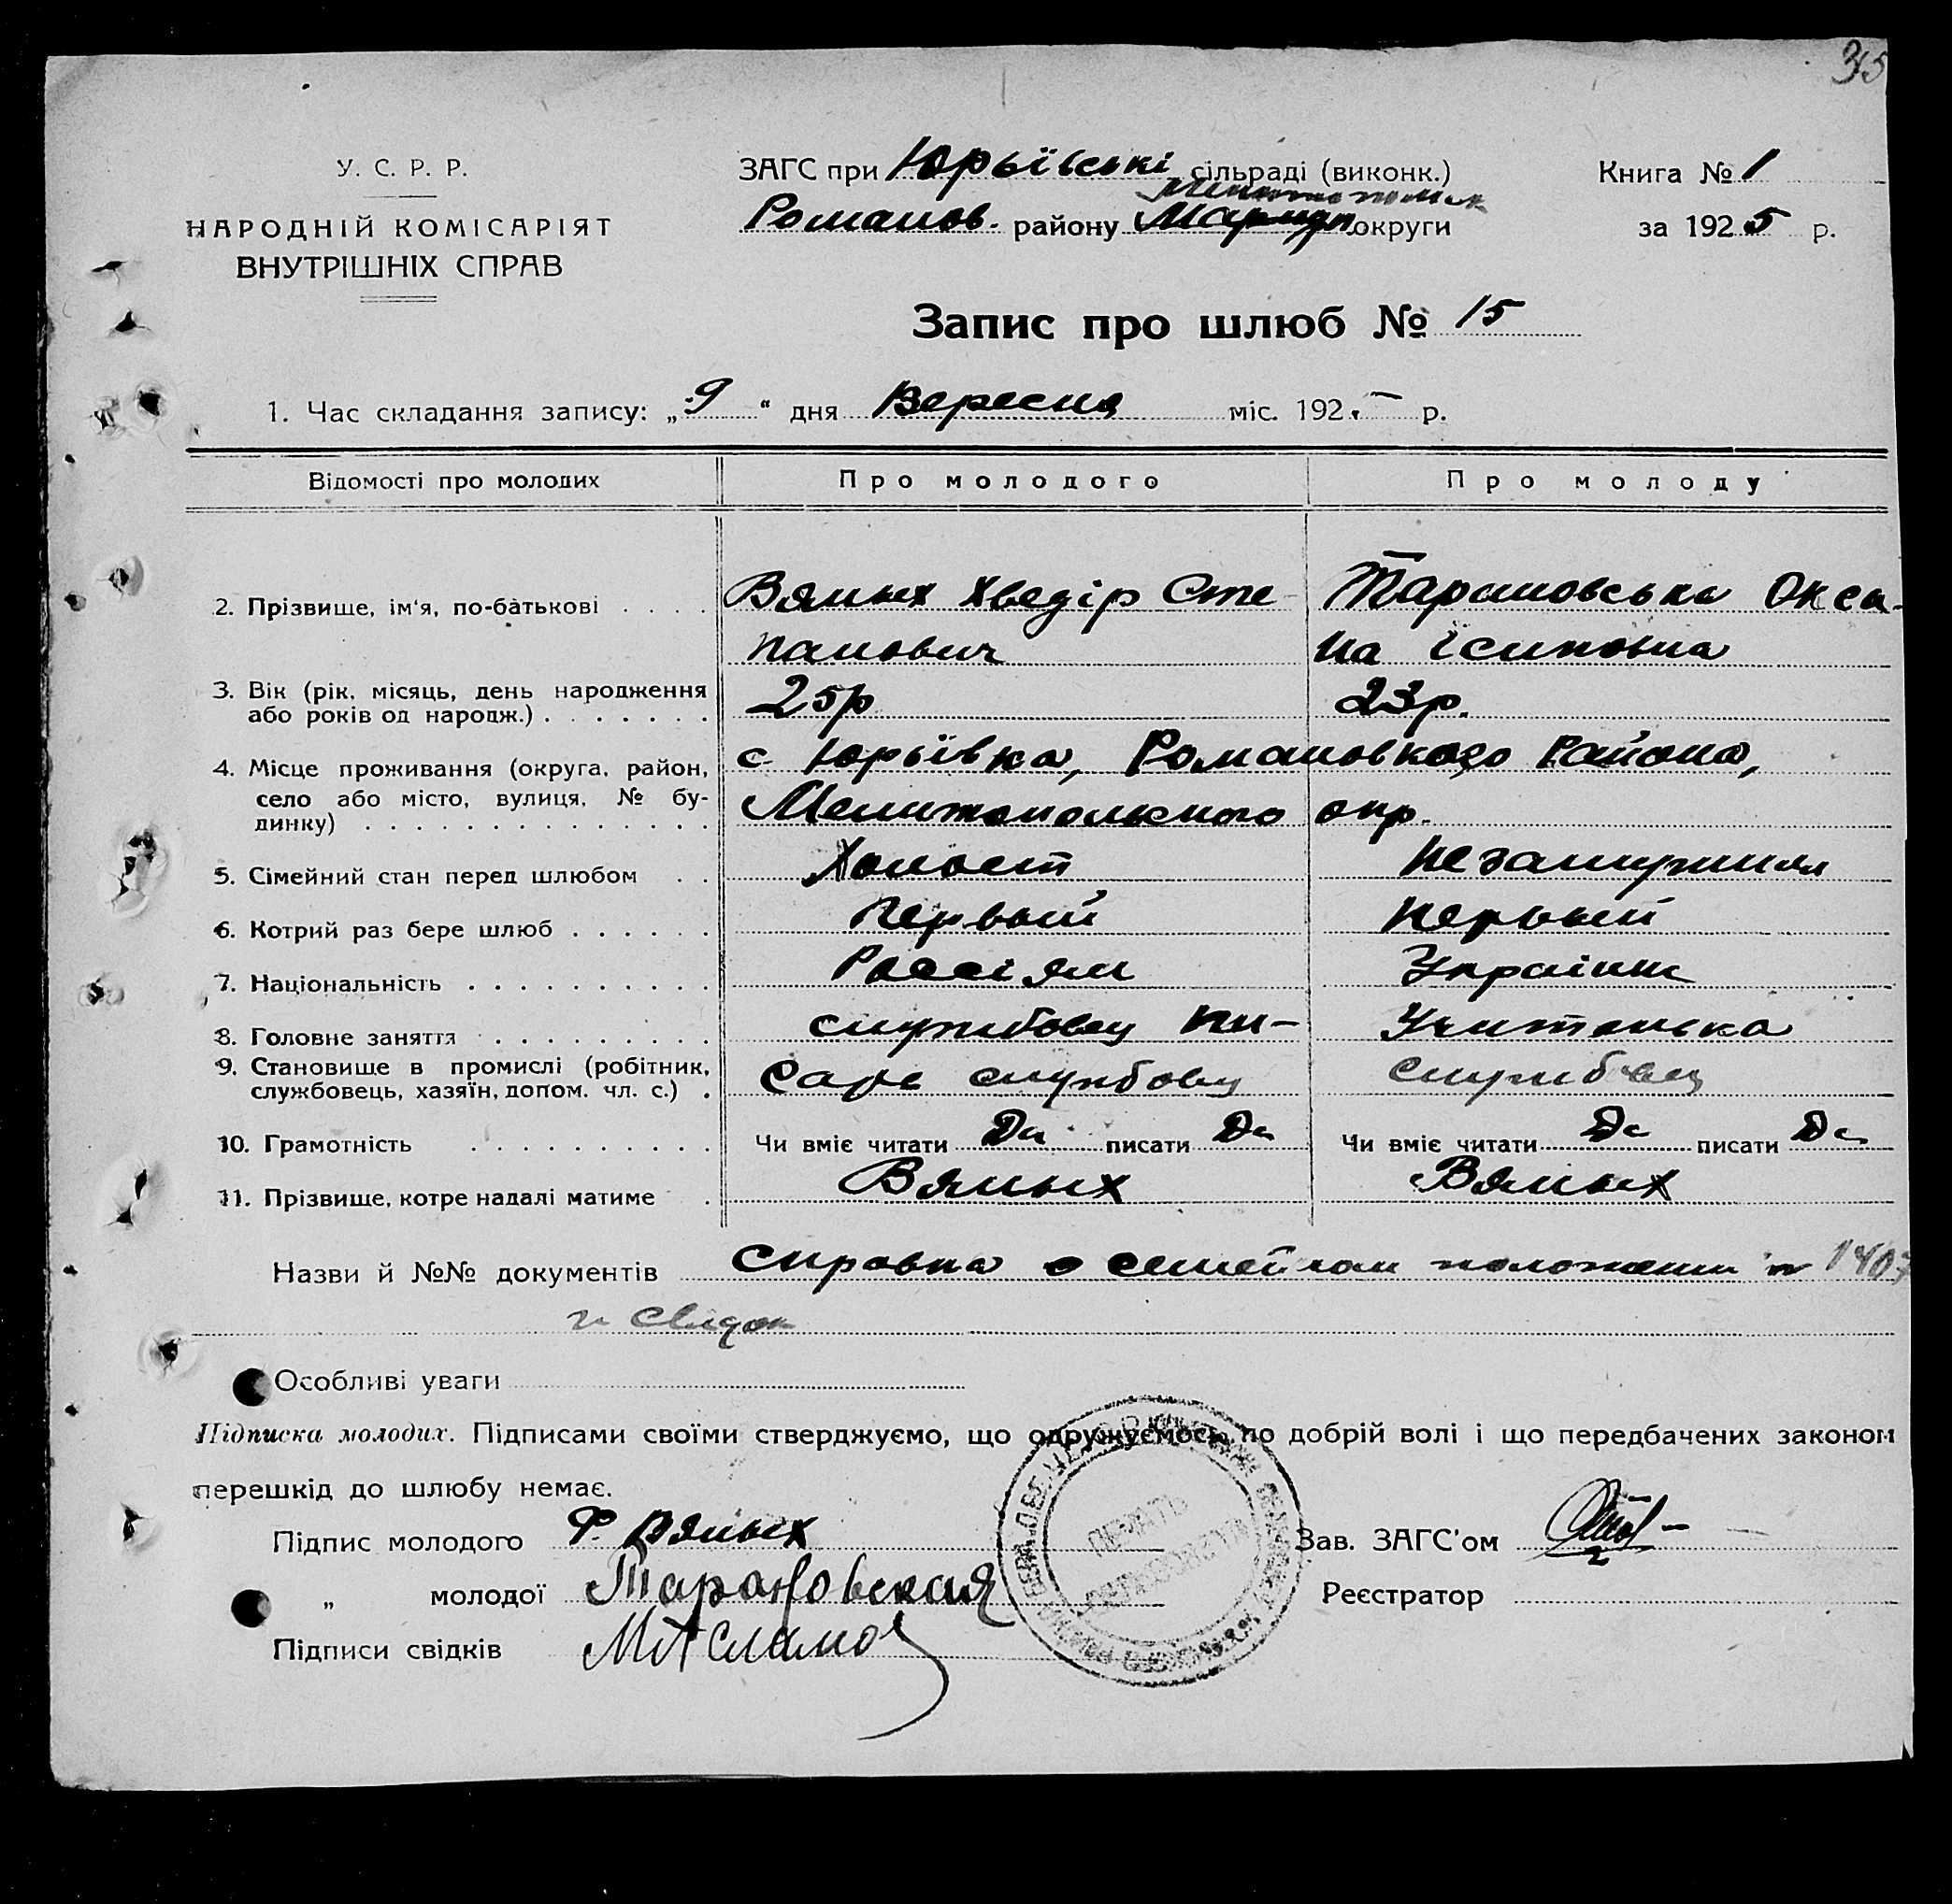 35
У. С. Р. Р.
НАРОДНІЙ КОМІСАРІЯТ
ВНУТРІШНІХ СПРАВ
ЗАГС при Юрьївські сільраді (виконк.)
Мелитопольск
Романов. району Мариуп. округи
Книга № 1
за 1925 р.
Запис про шлюб № 15
1. Час складання запису: „9“ дня Вересня міс. 192 р.
Відомості про молодих
Про молодого
Про молоду
2. Прізвище, ім'я, по-батькові
Вялых Хведір Сте-
панович
Тарановська Окса-
на
3. Вік (рік, місяць, день народження
або років од народж.)
25р
23р.
4. Місце проживання (округа, район,
село або місто, вулиця, № бу-
динку)
с Юрьївка, Романовкого Района,
Мелитопольского окр.
5. Сімейний стан перед шлюбом
Холост
Незамужняя
6. Котрий раз бере шлюб
Первый
Первый
7. Національність
Россіян
Українк
8. Головне заняття
службовец Пи-
Учителька
9. Становище в промислі (робітник,
службовець, хазяїн, допом. чл. с.)
сарь службовц
службвец
10. Грамотність
Чи вміє читати Да писати Да
Чи вміє читати Да писати Да
11. Прізвище, котре надалі матиме
Вялых
Вялых
Назви й №№ документів Справка о семейном положении № 1407
Особливі уваги
Підписка молодих. Підписами своїми стверджуємо, що одружуємось по добрій волі і що передбачених законом
перешкід до шлюбу немає.
Підпис молодого Ф. Вялых
„ молодої Тарановская
Підписи свідків
Зав. ЗАГС'ом
Реєстратор
ПЕЧАТЬ
СЕЛЬСОВЕТА